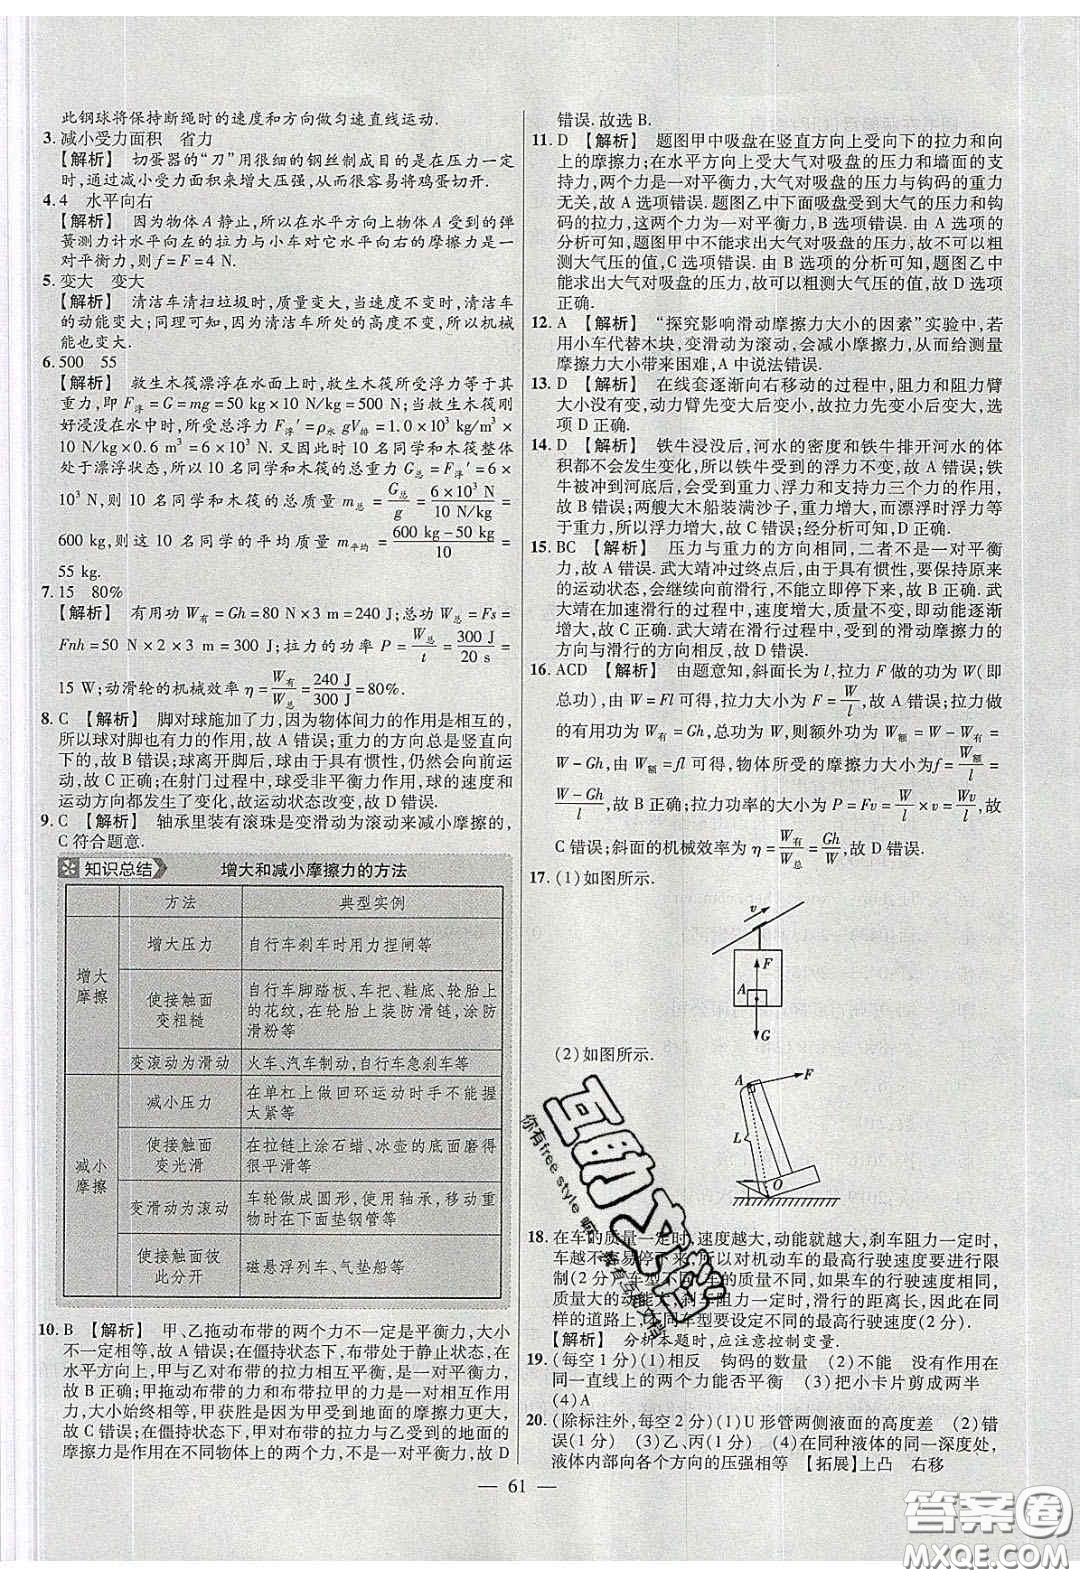 此钢球将保持断绳时的速度和方向做匀速直线运动.
3. 减小受力面积 省力
【解析】 切蛋器的“刀”用很细的钢丝制成目的是在压力一定
时,通过减小受力面积来增大压强,从而很容易将鸡蛋切开.
4. 4 水平向右
【解析】 因为物体 A 静止,所以在水平方向上物体 A 受到的弹
簧测力计水平向左的拉力与小车对它水平向右的摩擦力是一
对平衡力,则 f = F = 4 N.
5. 变大 变大
【解析】 清洁车清扫垃圾时,质量变大,当速度不变时,清洁车
的动能变大;同理可知,清洁车所处的高度不变,所以机械
能也变大.
6. 500 55
【解析】 救生木筏漂浮在水面上时,救生木筏所受浮力等于其
重力,即 F浮 = G = mg = 50 kg×10 N/kg = 500 N;当救生木筏刚
好浸没在水中时,所受总浮力 F浮′ = ρ水 gV排 = 1.0×10³ kg/m³×
10 N/kg×0.6 m³ = 6×10³ N. 又因此时 10 名同学和木筏整体
处于漂浮状态,所以 10 名同学和木筏的总重力 G总 = F浮′ = 6×
10³ N,则 10 名同学和木筏的总质量 m总 = G总/g = 6×10³ N/10 N/kg =
600 kg,则这 10 名同学的平均质量 m平均 = 600 kg-50 kg/10 =
55 kg.
7. 15 80%
【解析】 有用功 W有 = Gh = 80 N×3 m = 240 J;总功 W总 = Fs =
Fnh = 50 N×2×3 m = 300 J;拉力的功率 P = W总/t = 300 J/20 s =
15 W;动滑轮的机械效率 η = W有/W总 = 240 J/300 J = 80%.
8. C 【解析】 脚对球施加了力,因为物体间力的作用是相互的,
所以球对脚也有力的作用,故 A 错误;重力的方向总是竖直向
下的,故 B 错误;球离开脚后,球由于具有惯性,仍然会向前运
动,故 C 正确;在射门过程中,球受非平衡力作用,球的速度和
运动方向都发生了变化,故运动状态改变,故 D 错误.
9. C 【解析】 轴承里装有滚珠是变滑动为滚动来减小摩擦的,
C 符合题意.
知识总结 增大和减小摩擦力的方法
方法 典型实例
增大摩擦 增大压力 自行车刹车时用力捏闸等
使接触面变粗糙 自行车脚踏板、车把、鞋底、轮胎上的花纹,在轮胎上装防滑链,涂防滑粉等
变滚动为滑动 火车、汽车制动,自行车急刹车等
减小摩擦 减小压力 在单杠上做回环运动时手不能握太紧等
使接触面变光滑 在拉链上涂石蜡、冰壶的底部磨得很平滑等
变滑动为滚动 车轮做成圆形,使用轴承,移动重物时在下面垫钢管等
使接触面彼此分开 磁悬浮列车、气垫船等
10. B 【解析】 甲、乙拖动布带的两个力不一定是平衡力,大小
不一定相等,故 A 错误;在僵持状态下,布带处于静止状态,在
水平方向上,甲、乙对布带的拉力相互平衡,是一对平衡力,
故 B 正确;甲拖动布带的力和布带拉甲的力为一对相互作用
力,大小始终相等,甲获胜是因为甲受到地面的摩擦力更大,
故 C 错误;在僵持状态下,甲对布带的拉力与乙受到的地面的
摩擦力是作用在不同物体上的两个力,不是一对平衡力,故 D
错误. 故选 B.
11. D 【解析】 题图甲中吸盘在竖直方向上受向下的拉力和向
上的摩擦力;在水平方向上受大气对吸盘的压力和墙面的支
持力,两个力是一对平衡力,大气对吸盘的压力与钩码的重力
无关,故 A 选项错误. 题图乙中下面吸盘受到大气的压力和
钩码的拉力,这两个力为一对平衡力,故 B 选项错误. 由 A 选项的
分析可知,题图甲中不能求出大气对吸盘的压力,故不可以粗
测大气压的值,C 选项错误. 由 B 选项的分析可知,题图乙中
能求出大气对吸盘的压力,故可以粗测大气压的值,故 D 选项
正确.
12. A 【解析】 “探究影响滑动摩擦力大小的因素”实验中,若
用小车代替木块,变滑动为滚动,会减小摩擦力,从而给测量
摩擦力大小带来困难,A 中说法错误.
13. D 【解析】 在线套逐渐向右移动的过程中,阻力和阻力臂
大小没有变,动力臂先变大后变小,故拉力先变小后变大,选
项 D 正确.
14. D 【解析】 铁牛浸没后,河水的密度和铁牛排开河水的体
积都不会发生变化,所以铁牛受到的浮力不变,故 A 错误;铁
牛被冲到河底后,会受到重力、浮力和支持力三个力的作用,
故 B 错误;两艘大木船装满沙子,重力增大,而漂浮时浮力等
于重力,所以浮力增大,故 C 错误;经分析可知,D 正确.
15. BC 【解析】 压力与重力的方向相同,二者不是一对平衡
力,故 A 错误. 武大靖冲过终点后,由于具有惯性,要保持原来
的运动状态,会继续向前滑行,不能立即停下来,故 B 正确. 武
大靖在加速滑行的过程中,速度增大,质量不变,即动能逐渐
增大,故 C 正确. 武大靖在滑行过程中,受到的滑动摩擦力的
方向与滑行的方向相反,故 D 错误.
16. ACD 【解析】 由题意知,斜面长为 l,拉力 F 做的功为 W(即
总功),由 W = Fl 可得,拉力大小为 F = W/l,故 A 正确;拉力做
的有用功为 W有 = Gh,总功为 W,则额外功为 W额 = W-W有 =
W-Gh,由 W额 = fl 可得,物体所受的摩擦力大小为 f = W额/l =
W-Gh/l,故 B 错误;拉力功率的大小为 P = Fv = W/l × v = Wv/l,故
C 正确;斜面的机械效率为 η = W有/W总 = Gh/W,故 D 正确.
17. (1)如图所示.
v
F
A
G
(2)如图所示.
A
F
L
O
18. 在车的质量一定时,速度越大,动能就越大,刹车阻力一定时,
车越不容易停下来,所以对机动车的最高行驶速度要进行限
制(2 分). 车型不同,车的质量不同,如果车的行驶速度相同,
质量大的动能大,刹车阻力一定时,滑行的距离长,因此在同
样的道路上,不同车型要设定不同的最高行驶速度(2 分).
【解析】 分析本题时,应注意控制变量.
19. (每空 1 分)(1)相反 钩码的数量 (2)不能 没有作用在
同一直线上的两个力能否平衡 (3)把小卡片剪成两半
(4)A
20. (除标注外,每空 2 分)(1)U 形管两侧液面的高度差 (2)错
误(1 分) (3)乙、丙(1 分) (4)在同种液体的同一深度处,
液体内部向各个方向的压强相等 【拓展】上凸 右移
— 61 —
互助文档
答案圈
MXQE.COM